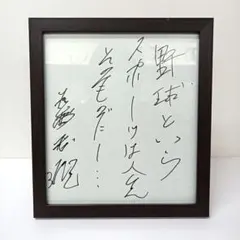 野球という
スポーツは人生
そのものだ!…
長嶋茂雄